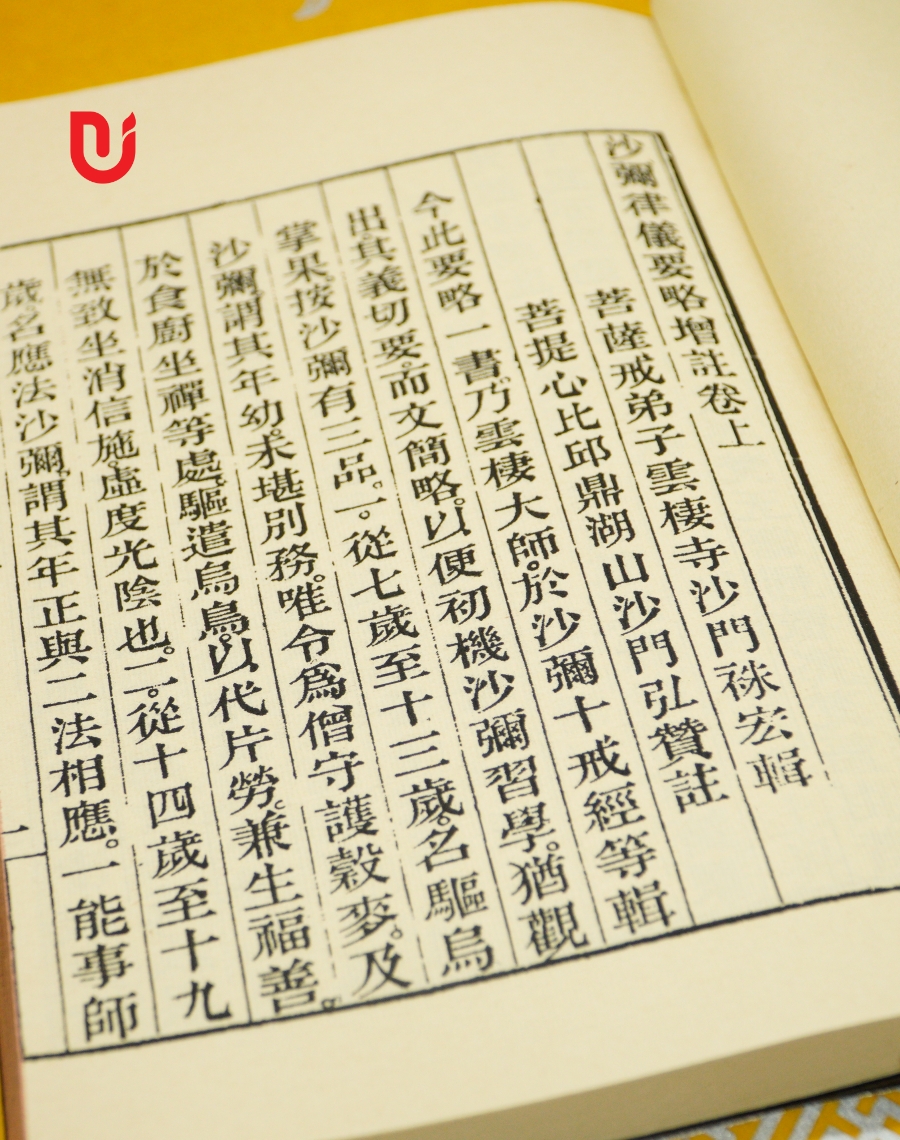 沙彌律儀要略增註卷上
菩薩戒弟子雲棲寺沙門袾宏輯
菩提心比邱鼎湖山沙門弘贊註
今此要略一書乃雲棲大師。於沙彌十戒經等輯
出其義切要。而文簡略。以便初機沙彌習學。猶觀
掌果。按沙彌有三品。一。從七歲至十三歲。名驅烏
沙彌。謂其年幼。未堪別務。唯令爲僧守護穀麥。及
於食廚坐禪等處。驅遣烏鳥。以代片勞。兼生福善。
無致坐消信施。虛度光陰也。二。從十四歲至十九
歲。名應法沙彌。謂其年正與二法相應。一能事師